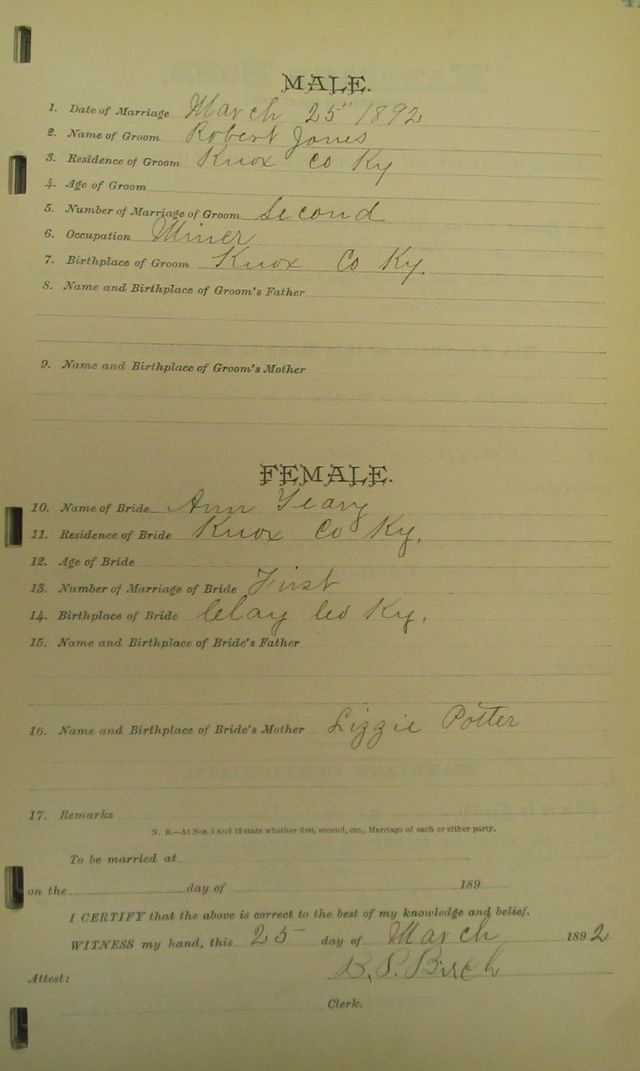 MALE.
1. Date of Marriage March 25" 1892
2. Name of Groom Robert Jones
3. Residence of Groom Knox Co Ky
4. Age of Groom
5. Number of Marriage of Groom Second
6. Occupation Miner
7. Birthplace of Groom Knox Co Ky.
8. Name and Birthplace of Groom's Father
9. Name and Birthplace of Groom's Mother
FEMALE.
10. Name of Bride Ann
11. Residence of Bride Knox Co Ky.
12. Age of Bride
13. Number of Marriage of Bride First
14. Birthplace of Bride Clay Co Ky.
15. Name and Birthplace of Bride's Father
16. Name and Birthplace of Bride's Mother Lizzie Potter
17. Remarks
N. B.—At Nos. 5 and 13 state whether first, second, etc., Marriage of each or either party.
To be married at
on the day of 189
I CERTIFY that the above is correct to the best of my knowledge and belief.
WITNESS my hand, this 25 day of March 1892
B. P. Birch
Attest:
Clerk.